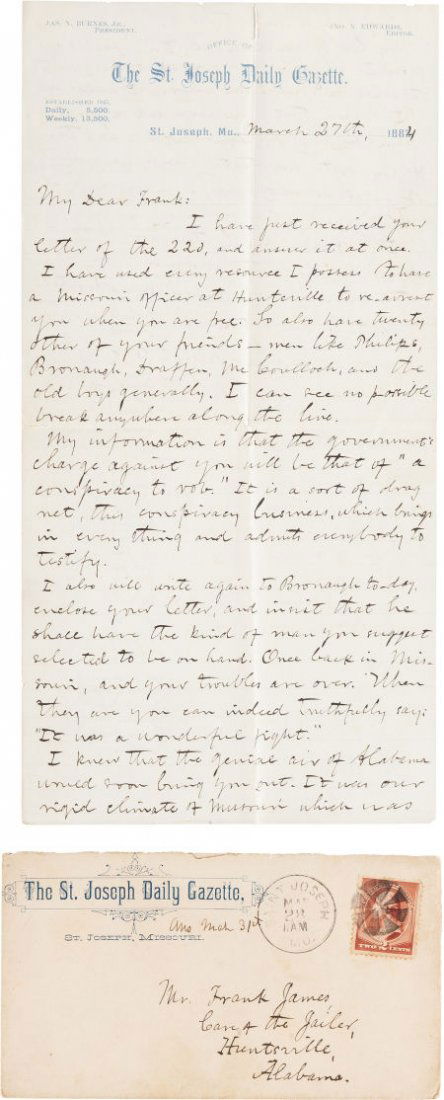 JAS. N. BURNES, JR.,
PRESIDENT.
JNO. N. EDWARDS,
EDITOR.
OFFICE OF
The St. Joseph Daily Gazette.
ESTABLISHED 1845.
Daily, 5,500.
Weekly, 13,500.
St. Joseph, Mo., March 27th, 1884
My Dear Frank:
I have just received your
letter of the 22d, and answer it at once.
I have used every resource I possess to have
a Missouri officer at Huntsville to re-arrest
you when you are free. So also have twenty
other of your friends – men like Philips,
Bronaugh, Draffen, Mc Coulloch, and the
old boys generally. I can see no possible
break anywhere along the line.
My information is that the government's
charge against you will be that of "a
conspiracy to rob." It is a sort of drag
net, this conspiracy business, which brings
in every thing and admits everybody to
testify.
I also will write again to Bronaugh to-day,
enclose your letter, and insist that he
shall have the kind of man you suggest
selected to be on hand. Once back in Mis-
souri, and your troubles are over. When
they are you can indeed truthfully say:
"It was a wonderful fight."
I knew that the genial air of Alabama
would soon bring you out. It was our
rigid climate of Missouri which was
The St. Joseph Daily Gazette,
ST. JOSEPH, MISSOURI.
Ans Mch 31st
SAINT JOSEPH
28
AM
MO.
TWO CENTS
Mr. Frank James,
Care of the Jailer,
Huntsville,
Alabama.